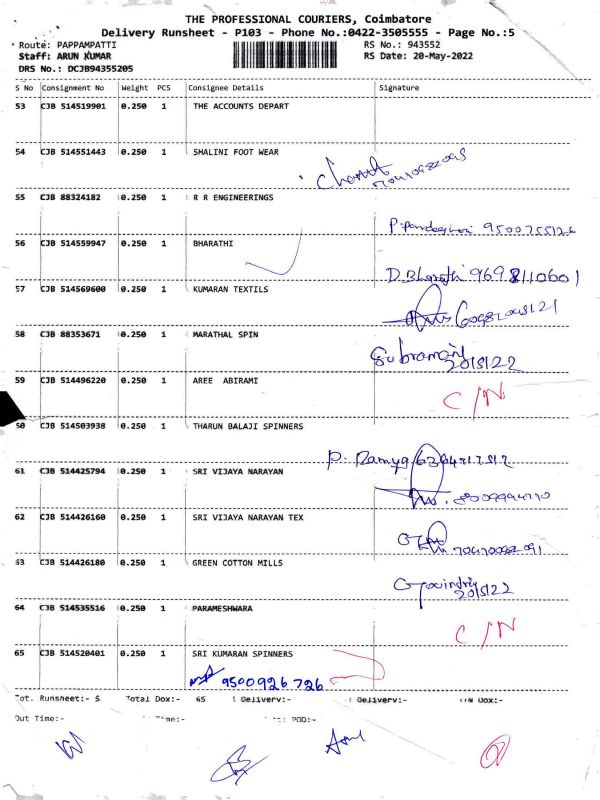 THE PROFESSIONAL COURIERS, Coimbatore
Delivery Runsheet - P103 - Phone No.:0422-3505555 - Page No.:5
Route: PAPPAMPATTI
RS No.: 943552
Staff: ARUN KUMAR
RS Date: 20-May-2022
DRS No.: DCJB94355205
S No Consignment No Weight PCS Consignee Details Signature
53 CJB 514519901 0.250 1 THE ACCOUNTS DEPART
54 CJB 514551443 0.250 1 SHALINI FOOT WEAR
55 CJB 88324182 0.250 1 R R ENGINEERINGS
9500755126
56 CJB 514559947 0.250 1 BHARATHI
D.Bharathi 9698110601
57 CJB 514569600 0.250 1 KUMARAN TEXTILS
58 CJB 88353671 0.250 1 MARATHAL SPIN
Subramani
20/5/22
59 CJB 514496220 0.250 1 AREE ABIRAMI
C/N
60 CJB 514503938 0.250 1 THARUN BALAJI SPINNERS
P. Ramya
61 CJB 514425794 0.250 1 SRI VIJAYA NARAYAN
62 CJB 514426160 0.250 1 SRI VIJAYA NARAYAN TEX
63 CJB 514426180 0.250 1 GREEN COTTON MILLS
Govindraj
20/5/22
64 CJB 514535516 0.250 1 PARAMESHWARA
C/N
65 CJB 514520401 0.250 1 SRI KUMARAN SPINNERS
9500926726
Tot. Runsheet:- 5 Total Dox:- 65 Delivery:- Delivery:- Dox:-
Out Time:- Time:- POD:-